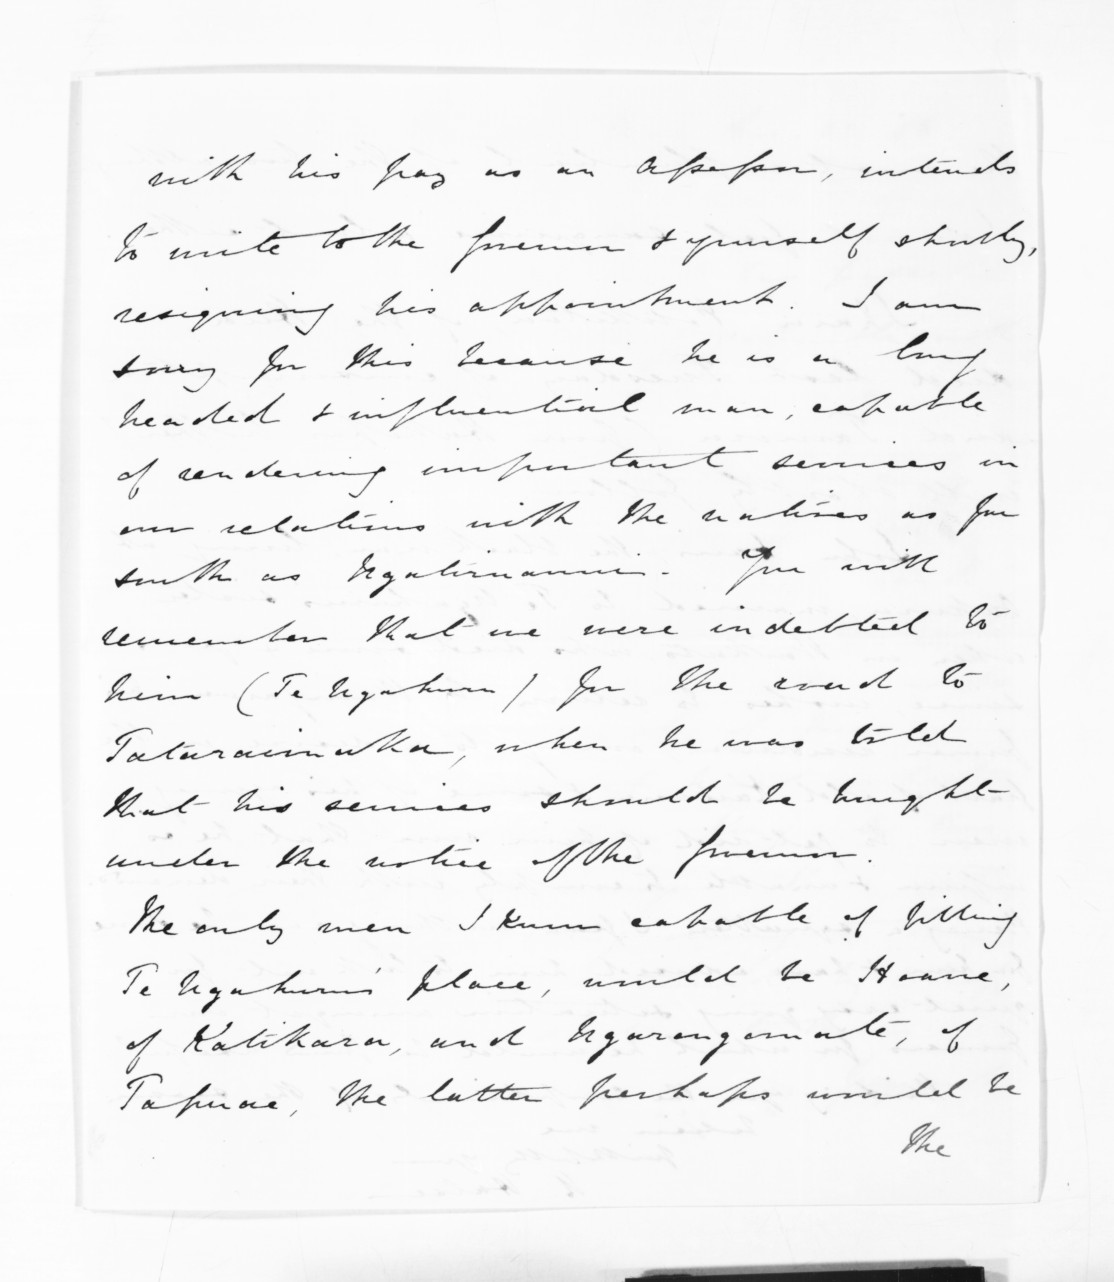 with his pay as an Assessor, intends
to write to the Governor & yourself shortly,
resigning his appointment. I am
sorry for this because he is a long
headed & influential man, capable
of rendering important services in
our relations with the natives as far
south as Ngatiruanui. You will
remember that we were indebted to
him (Te Ngahuru) for the road to
Tataraimaka, when he was told
that his services should be brought
under the notice of the Governor.
The only men I know capable of filling
Te Ngahuru's place, would be Hoani,
of Katikara, and Ngarongomate, of
Tapuae, the latter perhaps would be
the